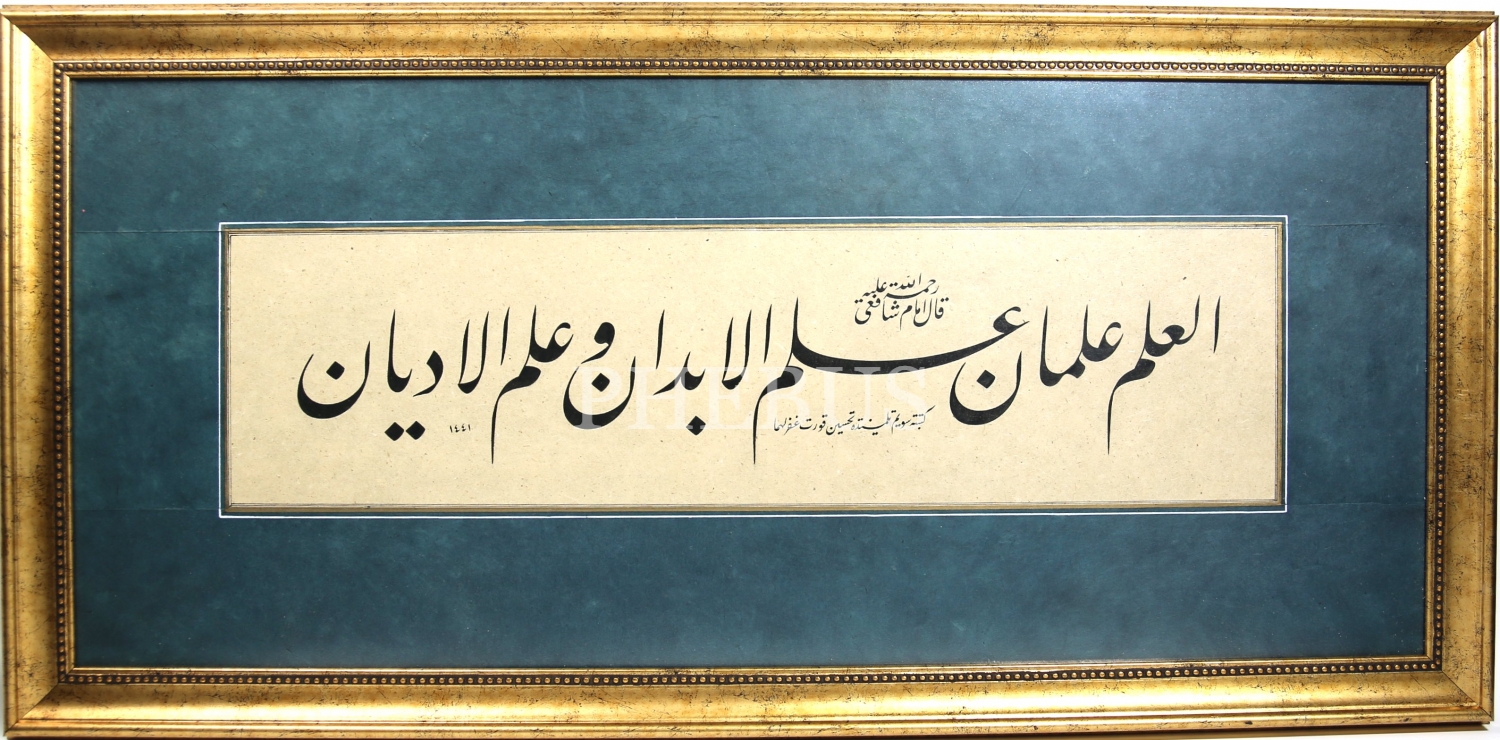 قال امام شافعى
رحمة الله عليه
العلم علمان علم الابدان و علم الاديان
كتبته سويم تلميذة تحسين قورت غفر لهما
١٤٤١
PHEBUS